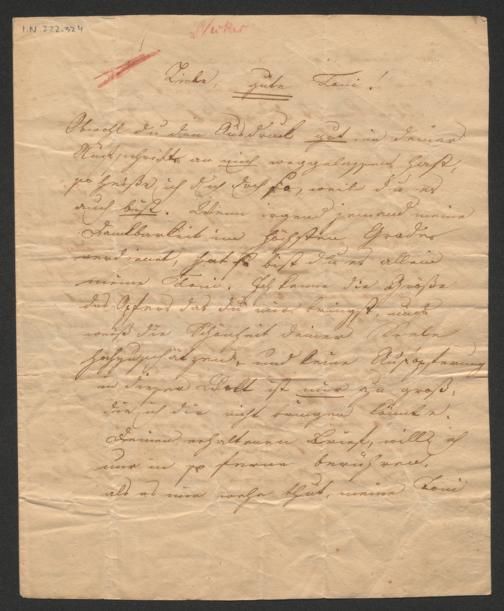 I.N. 222.324
Liebe, gute Toni!
Obwohl du den Ausdruck gut in deiner
an mich weggelassen hast,
so heiße ich dich doch so, weil du es
auch bist. Wenn irgend jemand meine
Dankbarkeit im höchsten Grade
verdienet, so bist du es allein
meine Toni. Ich kenne die Größe
des Opfers das du mir bringst, und
weiß die Schönheit deiner Seele
hochzuschätzen, und keine Aufopferung
in dieser Welt ist mir zu groß,
die ich dir nicht bringen könnte.
Deinen erhaltenen Brief, will ich
nur in so ferne berühren,
als es mir wehe thut, meine Toni